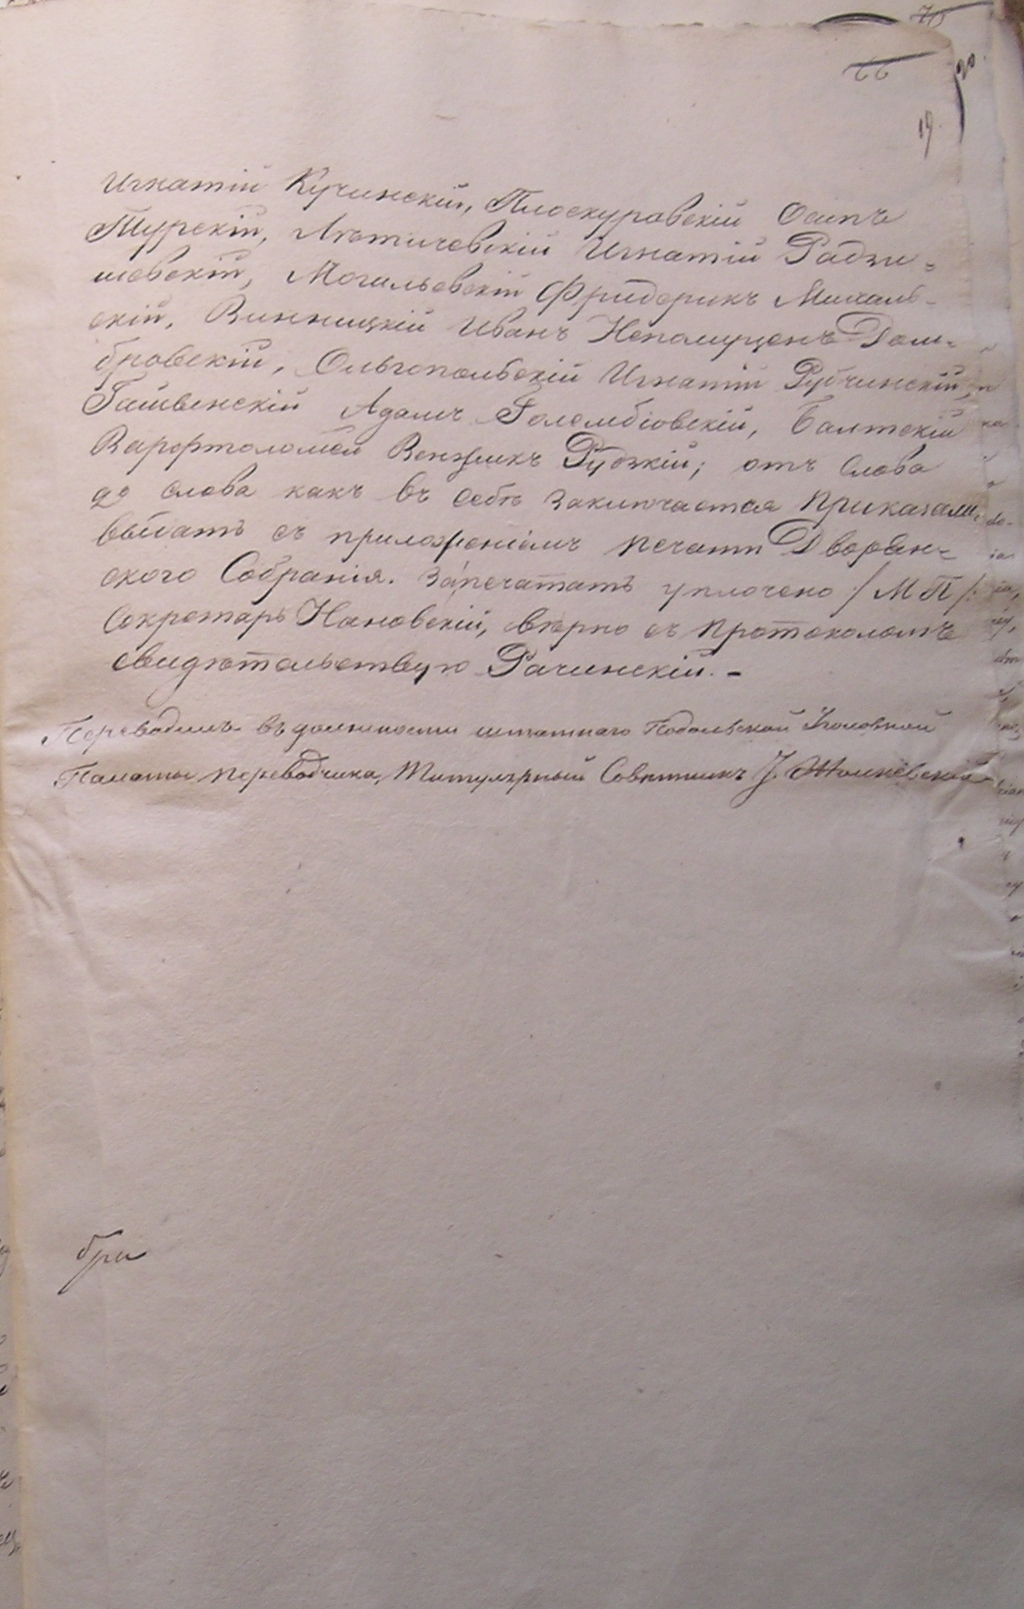 66
19
Игнатій Кучинскій, Плоскуровскій Осипъ
Турскій, Лѣтичевскій Игнатій Радзи-
шевскій, Могилевскій Фридерикъ Михаль-
скій, Винницкій Иванъ Непомуценъ Дом-
бровскій, Ольгопольскій Игнатій Рубчинскій,
Гайсенскій Адамъ Голембіовскій, Балтскій
Варфоломей Венжикъ Рудзкій; отъ слова
до слова какъ въ себѣ заключается приказали
выдать съ приложеніемъ печати Дворян-
скаго Собранія. Запечатать уплочено /М П/:
Секретарь Нановскій, вѣрно съ протоколомъ
свидѣтельствую Рачинскій. -
Переводилъ въ должности штатнаго Подольской Уголовной
Палаты переводчика, Титулярный Совѣтникъ